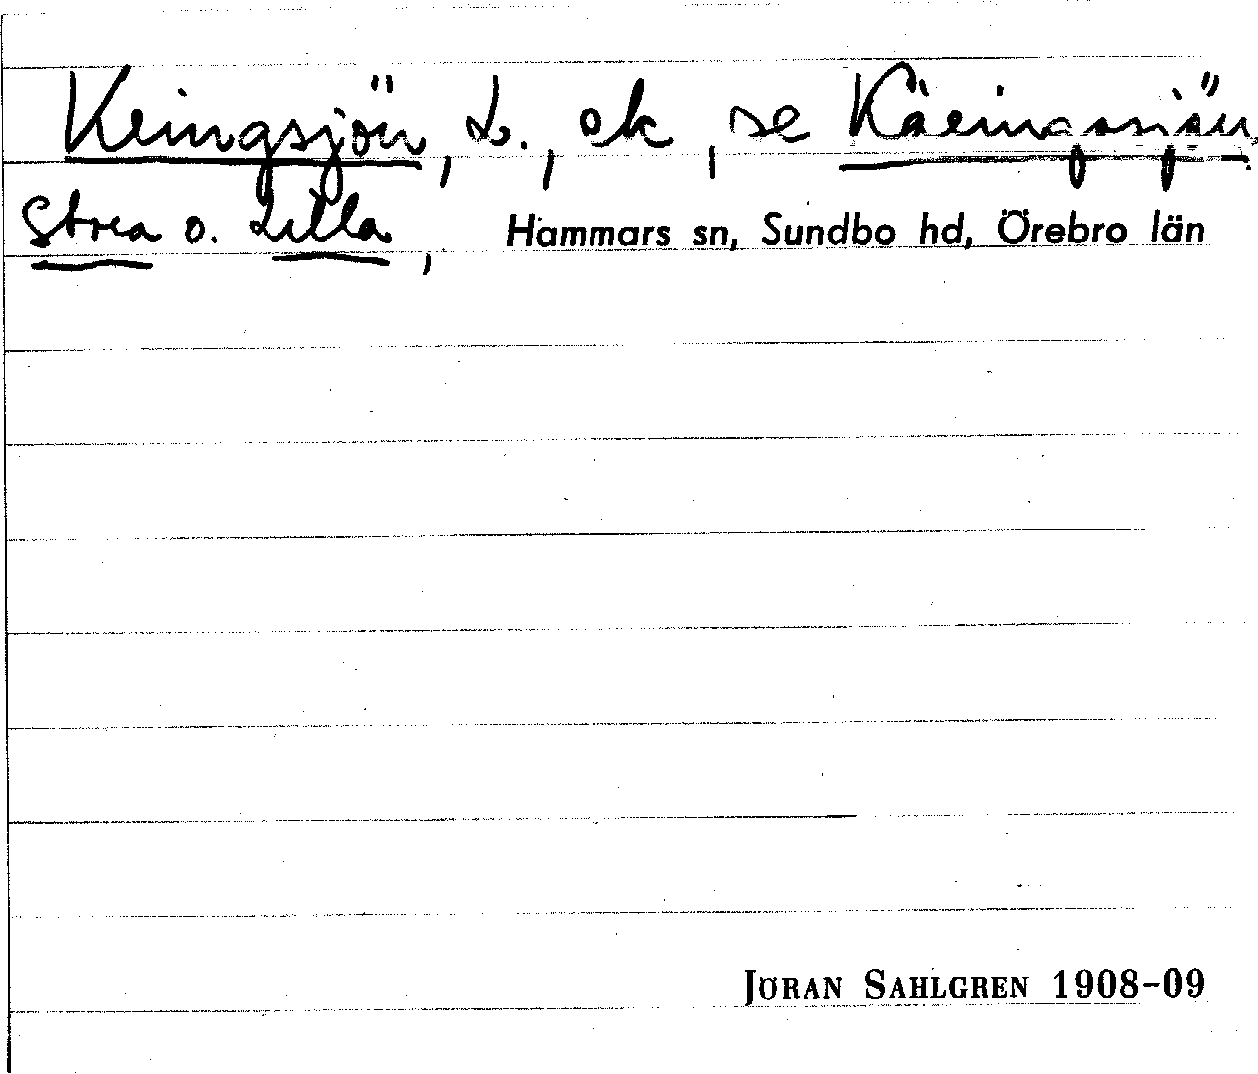 Kringsjön, L., ek, se Käringasjön,
Stora o. Lilla, Hammars sn, Sundbo hd, Örebro län
JÖRAN SAHLGREN 1908-09